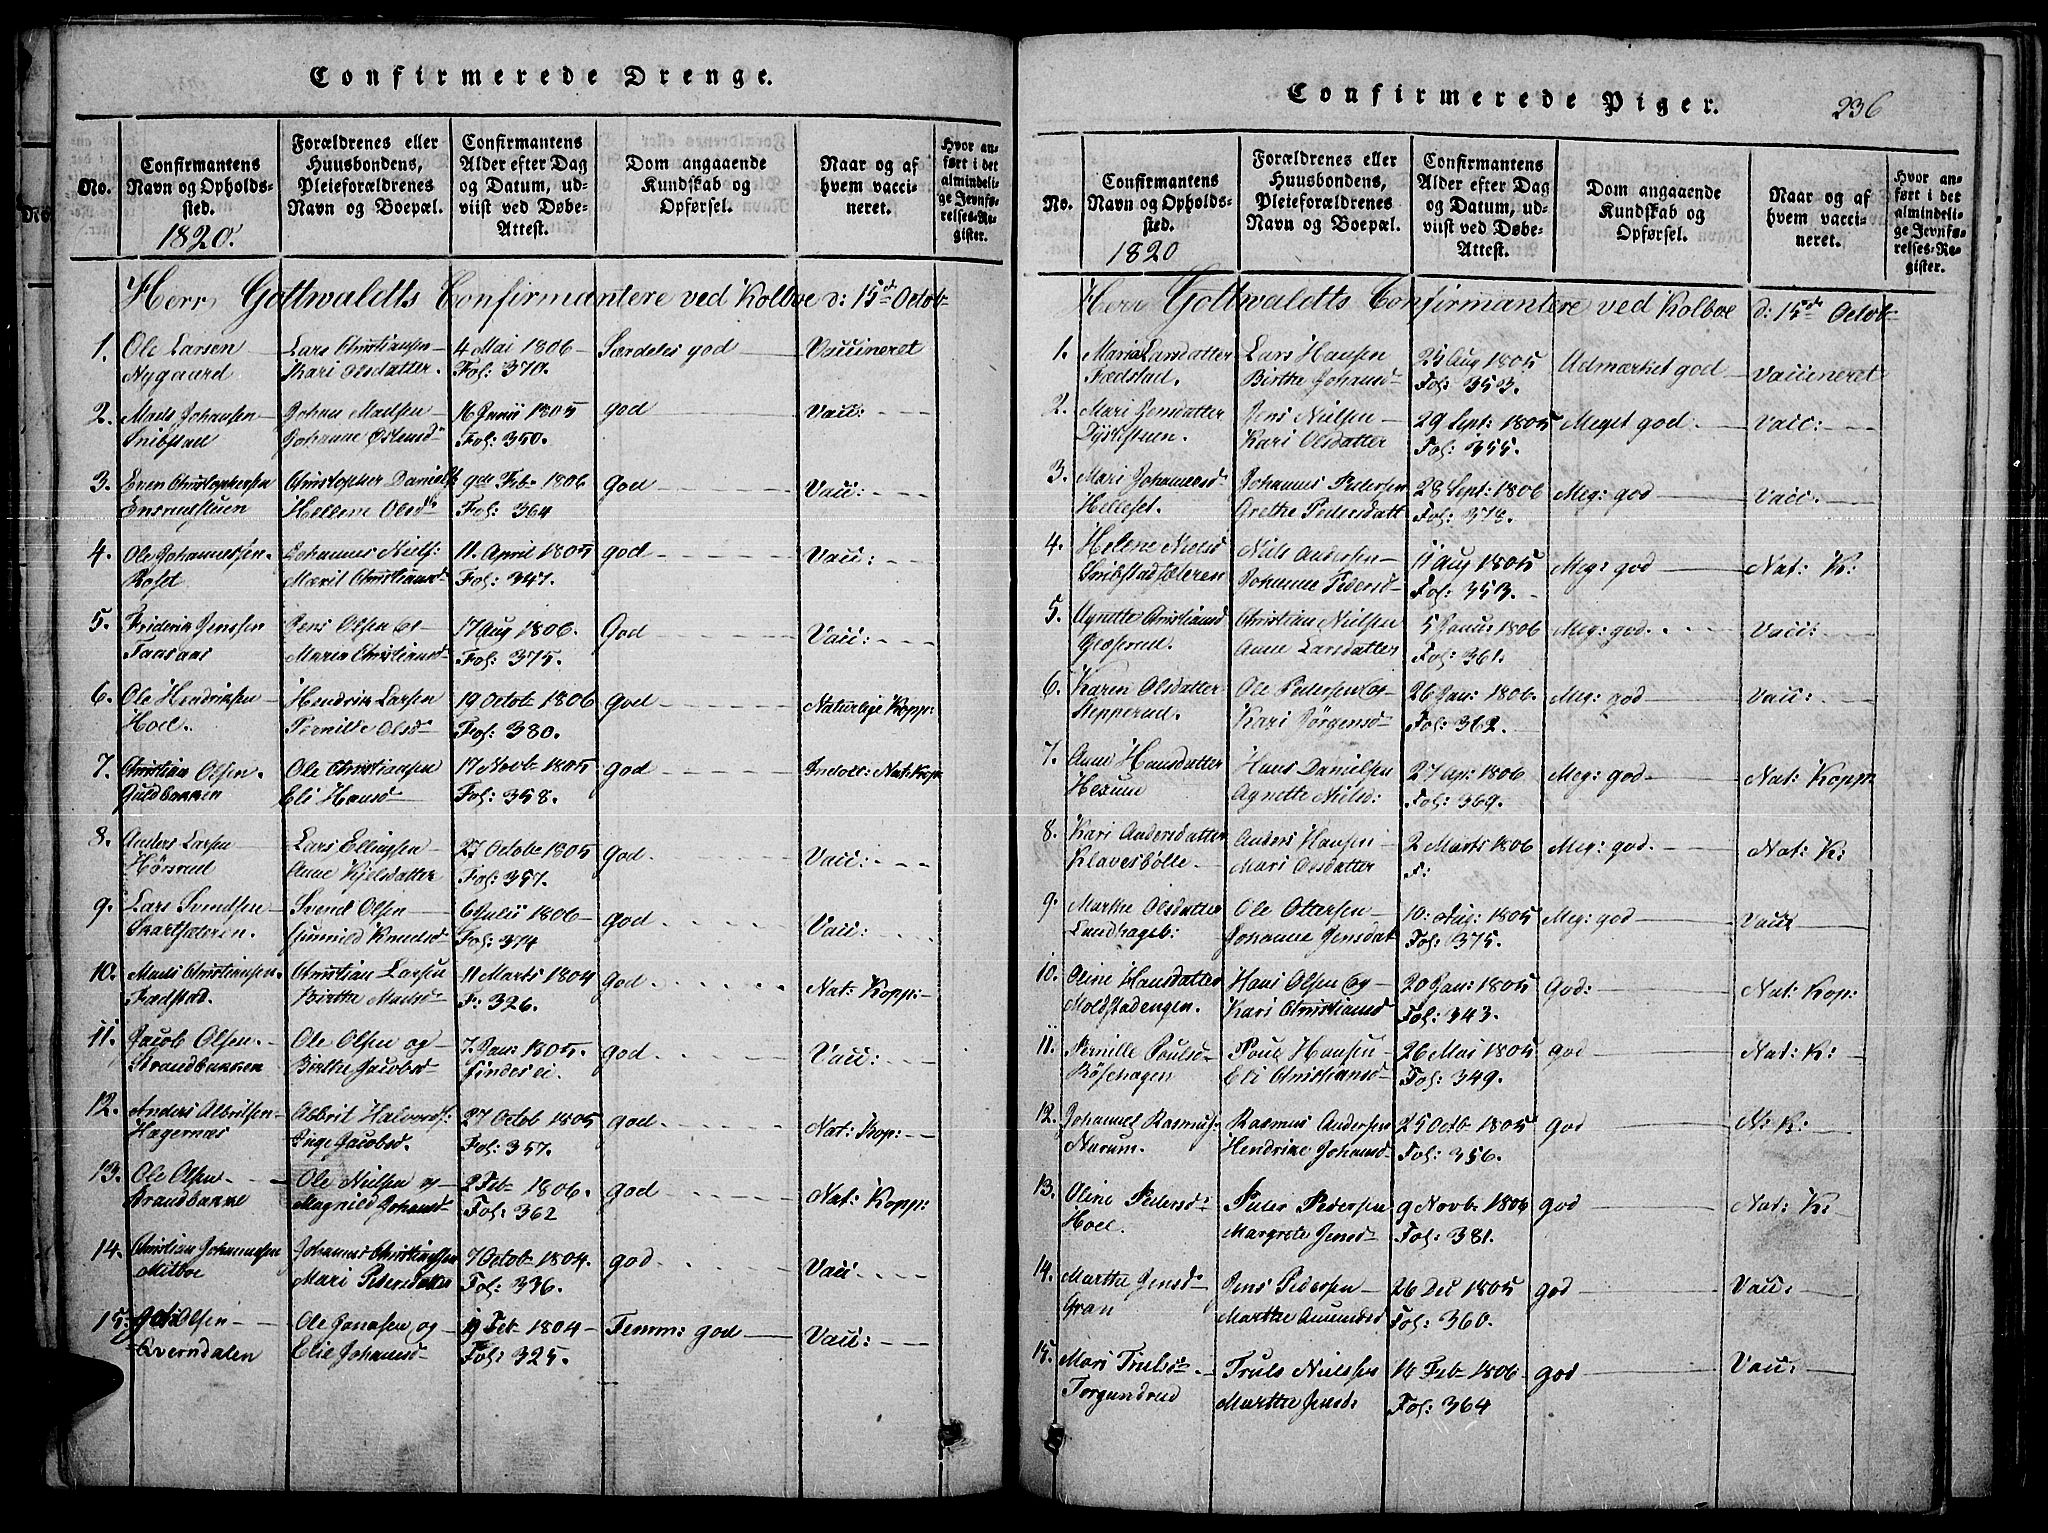 Confirmerede Drenge.
No.
Confirmantens Navn og Opholdssted.
1820.
Forældrenes eller Huusbondens, Pleieforældrenes Navn og Boepæl.
Confirmantens Alder efter Dag og Datum, udviist ved Døbe-Attest.
Dom angaaende Kundskab og Opførsel.
Naar og af hvem vaccineret.
Hvor anført i det almindelige Jevnførelses-Register.
Herr Gottwaldts Confirmantere ved Kolboe d: 15de Octob
1. Ole Larsen Lars Christiansen 4 Mai 1806 Særdeles god Vaccineret
Nygaard Kari Olsdatter. Fol: 370.
2. Mads Johansen Johan Madsen 16 Junii 1805 god Vacc:
Snibstad Johanne Ostensd Fol: 350.
3. Even Christophersen Christopher Daniels 9de Feb 1806 god Vacc:
Ensrudstuen Hellene Olsd Fol: 364
4. Ole Johannessen. Johannes Niels: 11 April 1805 god Vacc:
Rofst Marit Christiansd Fol: 347.
5. Friderik Jenssen Jens Olsen og 17 Aug 1806. God Vacc:
Taasaas Maria Christiansd Fol: 375.
6. Ole Hendriksen Hendrik Larsen 19 Octob 1806 god Naturlige Kopp:
Hoel. Pernille Olsd Fol: 380.
7. Christian Olsen. Ole Christiansen 17 Novb 1805 god Nat: Kop
Guldbakken Eli Hansd Fol: 358.
8. Anders Larsen Lars Ellingsen 27 Octob 1805 god Vacc:
Hørsrud Anne Kjelsdatter Fol: 357.
9. Lars Svendsen Svend Olsen 6 Julii 1806 god Vacc:
Skartsæteren. Gunnild Knudsd Fol: 374
10. Mads Christiansen. Christian Larsen 11 Marts 1804 god Nat: Kopp:
Fædstad. Birthe Madsd F: 326.
11. Jacob Olsen. Ole Olsen og 7. Jan: 1805. god Vacc:
Strandbakken Birthe Jacobsd findes ei.
12. Anders Albritsen Albrit Halvords: 27 Octob 1805 god Nat: Kop:
Hagernæs Inge Jacobsd. Fol: 357.
13. Ole Olsen Ole Nielsen og 2 Feb 1806. god Nat: Kopp:
Strandbakke Magnild Johansd Fol: 362
14. Christian Johannessen Johannes Christianssen 7 Octob 1804. god Vacc
Mitboe Mari Pedersdatter Fol: 336.
15. Olsen Ole Jonassen og 19 Feb 1804 Temm: god Vacc:
Qverndalen Elie Johansd Fol: 325.
Confirmerede Piger.
236
No.
Confirmantens Navn og Opholdssted.
1820
Forældrenes eller Huusbondens, Pleieforældrenes Navn og Boepæl.
Confirmantens Alder efter Dag og Datum, udviist ved Døbe-Attest.
Dom angaaende Kundskab og Opførsel.
Naar og af hvem vaccineret.
Hvor anført i det almindelige Jevnførelses-Register.
Herr Gottwaldts Confirmantere ved Kolboe d: 15de Octob
1. Maria Larsdatter Lars Hansen 25 Aug 1805 Udmærket god Vaccineret
Fædstad. Birthe Johansd Fol: 353.
2. Mari Jensdatter Jens Nielsen 29 Sept: 1805 Meget god Vacc:
Tyskestuen. Kari Olsdatter Fol: 355.
3. Mari Johannesd Johannes Pedersen 28 Sept: 1806 Meg: god Vacc.
Helleset. Grethe Pedersdatt Fol: 378.
4. Helene Nielsd Niels Andersen 11 Aug 1805 Meg: god Nat: K:
Snibstadsæteren Johanne Pedersd Fol: 353.
5. Agnethe Christiansd Christian Nielsen 5 Janu: 1806 Meg: god. Vacc:
Gloserud. Anne Larsdatter Fol: 361.
6. Karen Olsdatter Ole Pedersen og 26 Jan: 1806. Meg: god Vacc:
Stepperud. Kari Jörgensd Fol: 362.
7. Anne Hansdatter Hans Danielsen 27 Ap: 1806 Meg: god Nat: Kopp
Hexum Agnette Nielsd: Fol: 369.
8. Kari Andersdatter Anders Hansen 2 Marts 1806 Meg: god. Nat: K:
Klavesbölle Mari Olsdatter F:
9. Marthe Olsdatter Ole Ottersen 10: Aug: 1805 Meg: god Vacc
Lundhageb: Johanne Jensdat Fol: 375.
10. Oline Hansdatter Hans Olsen og 20 Jan: 1805 God: Nat: Kop:
Moldstadengen. Kari Christiansd Fol: 343.
11. Pernille Poulsd Poul Hansen 26 Mai 1805 god Nat: K:
Rösehagen Eli Christiansd Fol: 349.
12. Johanne Rasmus: Rasmus Andersen 25 Octb 1805 god N: K:
Narum. Hendrine Johansd Fol: 356.
13. Oline Pedersd: Peder Pedersen 9 Novb 1806 god Nat: K:
Hoel. Margrete Jensd Fol: 381.
14. Marthe Jensd: Jens Pedersen 26 Dec 1805 god Vacc:
Gran Marthe Amundsd Fol: 360.
15. Mari Trulsd: Truls Nielssen 16 Feb 1806 god Vacc:
Torgundrud Marthe Jensd: Fol: 364